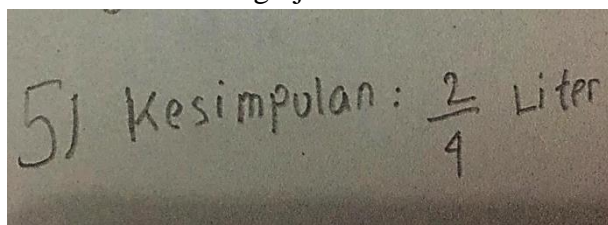 5) Kesimpulan : 2/4 Liter